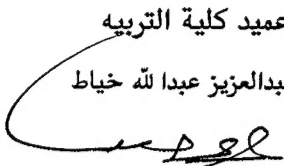 عميد كلية التربيه
عبدالعزيز عبدا لله خياط